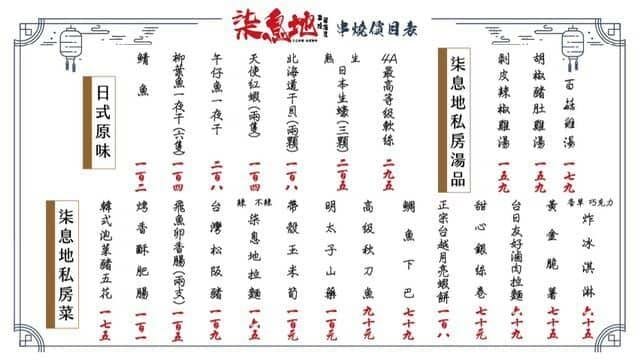 柒息地 串燒價目表
柒息地私房湯品
百菇雞湯 一七九
胡椒豬肚雞湯 一五九
剝皮辣椒雞湯 一五九
日式原味
4A最高等級軟絲 二九五
生 熟 日本生蠔(三顆) 二百五
北海道干貝(兩顆) 一百八
天使紅蝦(兩隻) 一百四
午仔魚一夜干 二百八
柳葉魚一夜干(六隻) 一百四
鯖魚 一百二
香草 巧克力 炸冰淇淋 六十六
黃金脆薯 七十五
台日友好滷肉拉麵 六十九
甜心銀絲卷 七十元
正宗台越月亮蝦餅 一百八
鯛魚下巴 七十九
高級秋刀魚 九十元
明太子山藥 一百元
帶殼玉米筍 一百元
辣 不辣 柒息地拉麵 一六五
台灣松阪豬 一百九
飛魚卵香腸(兩支) 一百五
烤香酥肥腸 一百一
韓式泡菜豬五花 一七五
柒息地私房菜